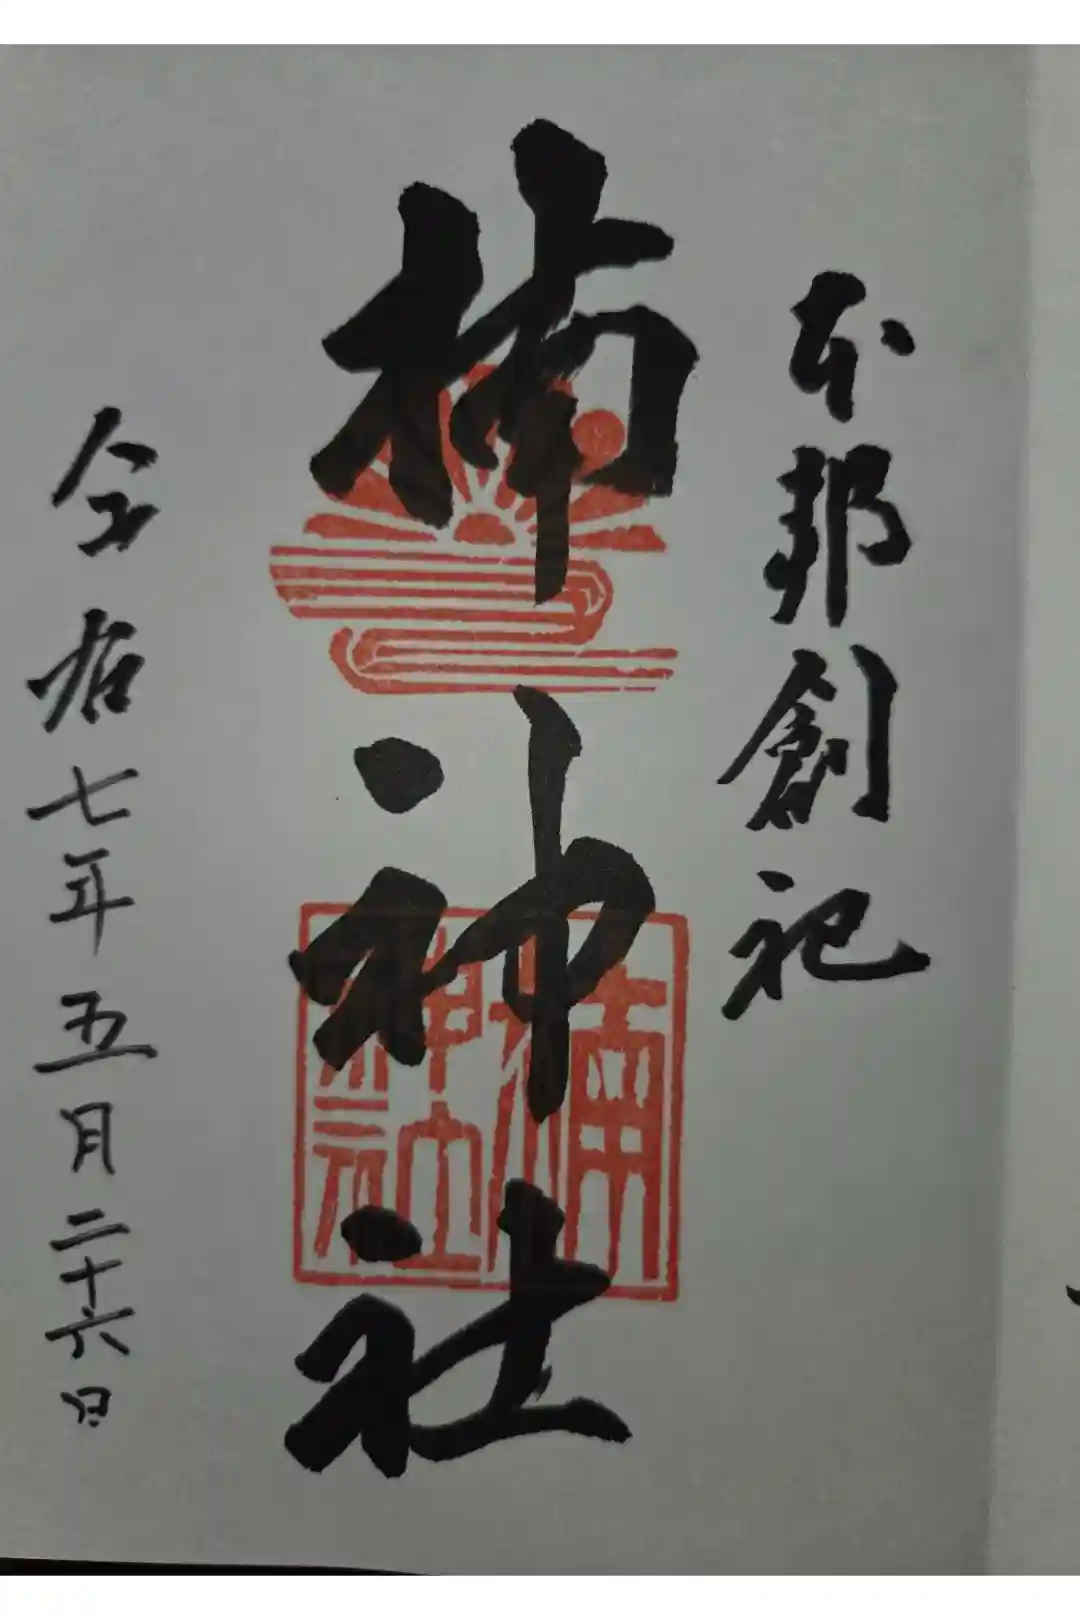 本邦創祀
楠神社
楠神社
令和七年五月二十六日